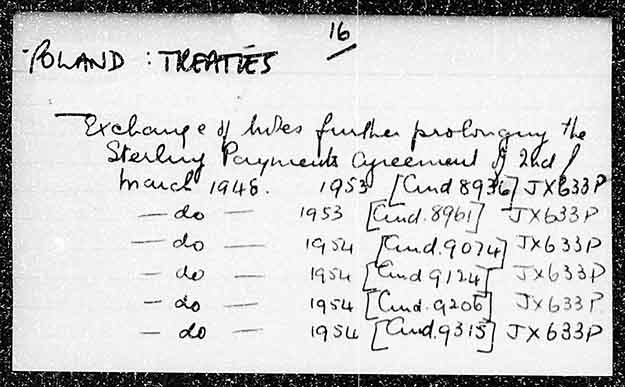 16
POLAND : TREATIES
Exchange of Notes further prolonging the
Sterling Payments Agreement of 2nd
March 1948. 1953 [Cmd 8936] JX633P
— do — 1953 [Cmd. 8961] JX633P
— do — 1954 [Cmd. 9074] JX633P
— do — 1954 [Cmd 9124] JX633P
— do — 1954 [Cmd. 9206] JX633P
— do — 1954 [Cmd. 9315] JX633P